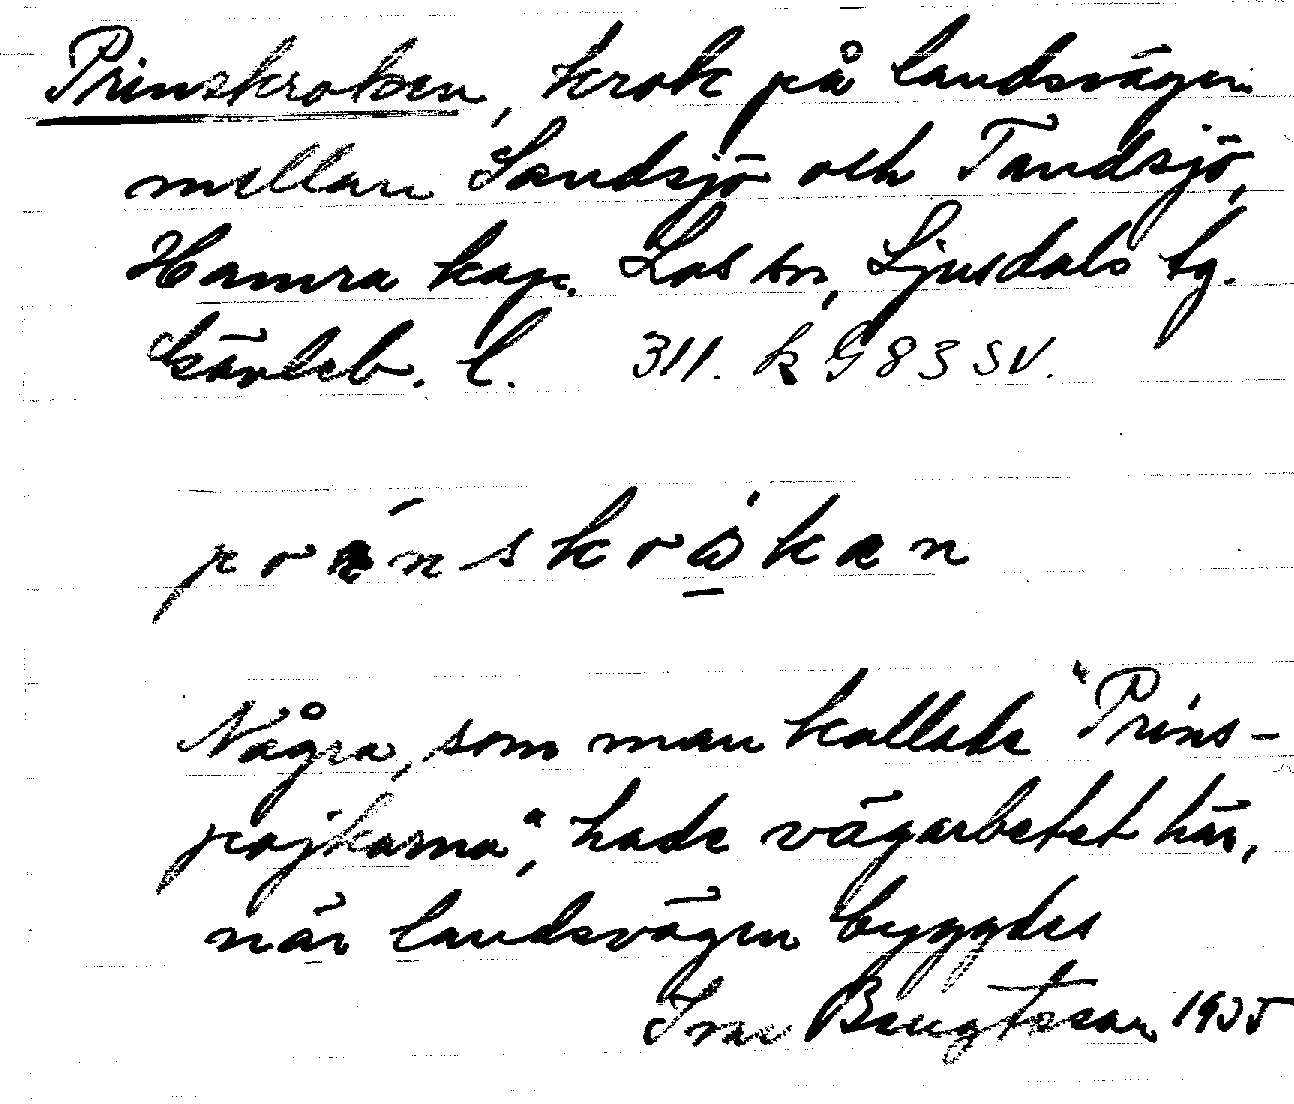 Prinskroken, krok på landsvägen
mellan Sandsjö och Tandsjö,
Hamra kap. Los sn, Ljusdals tg.
Gävleb. l. 311. k G 83 SV.
Några, som man kallade "Prins-
pojkarna", hade vägarbetet här,
när landsvägen byggdes
Ivar Bengtsson 1935